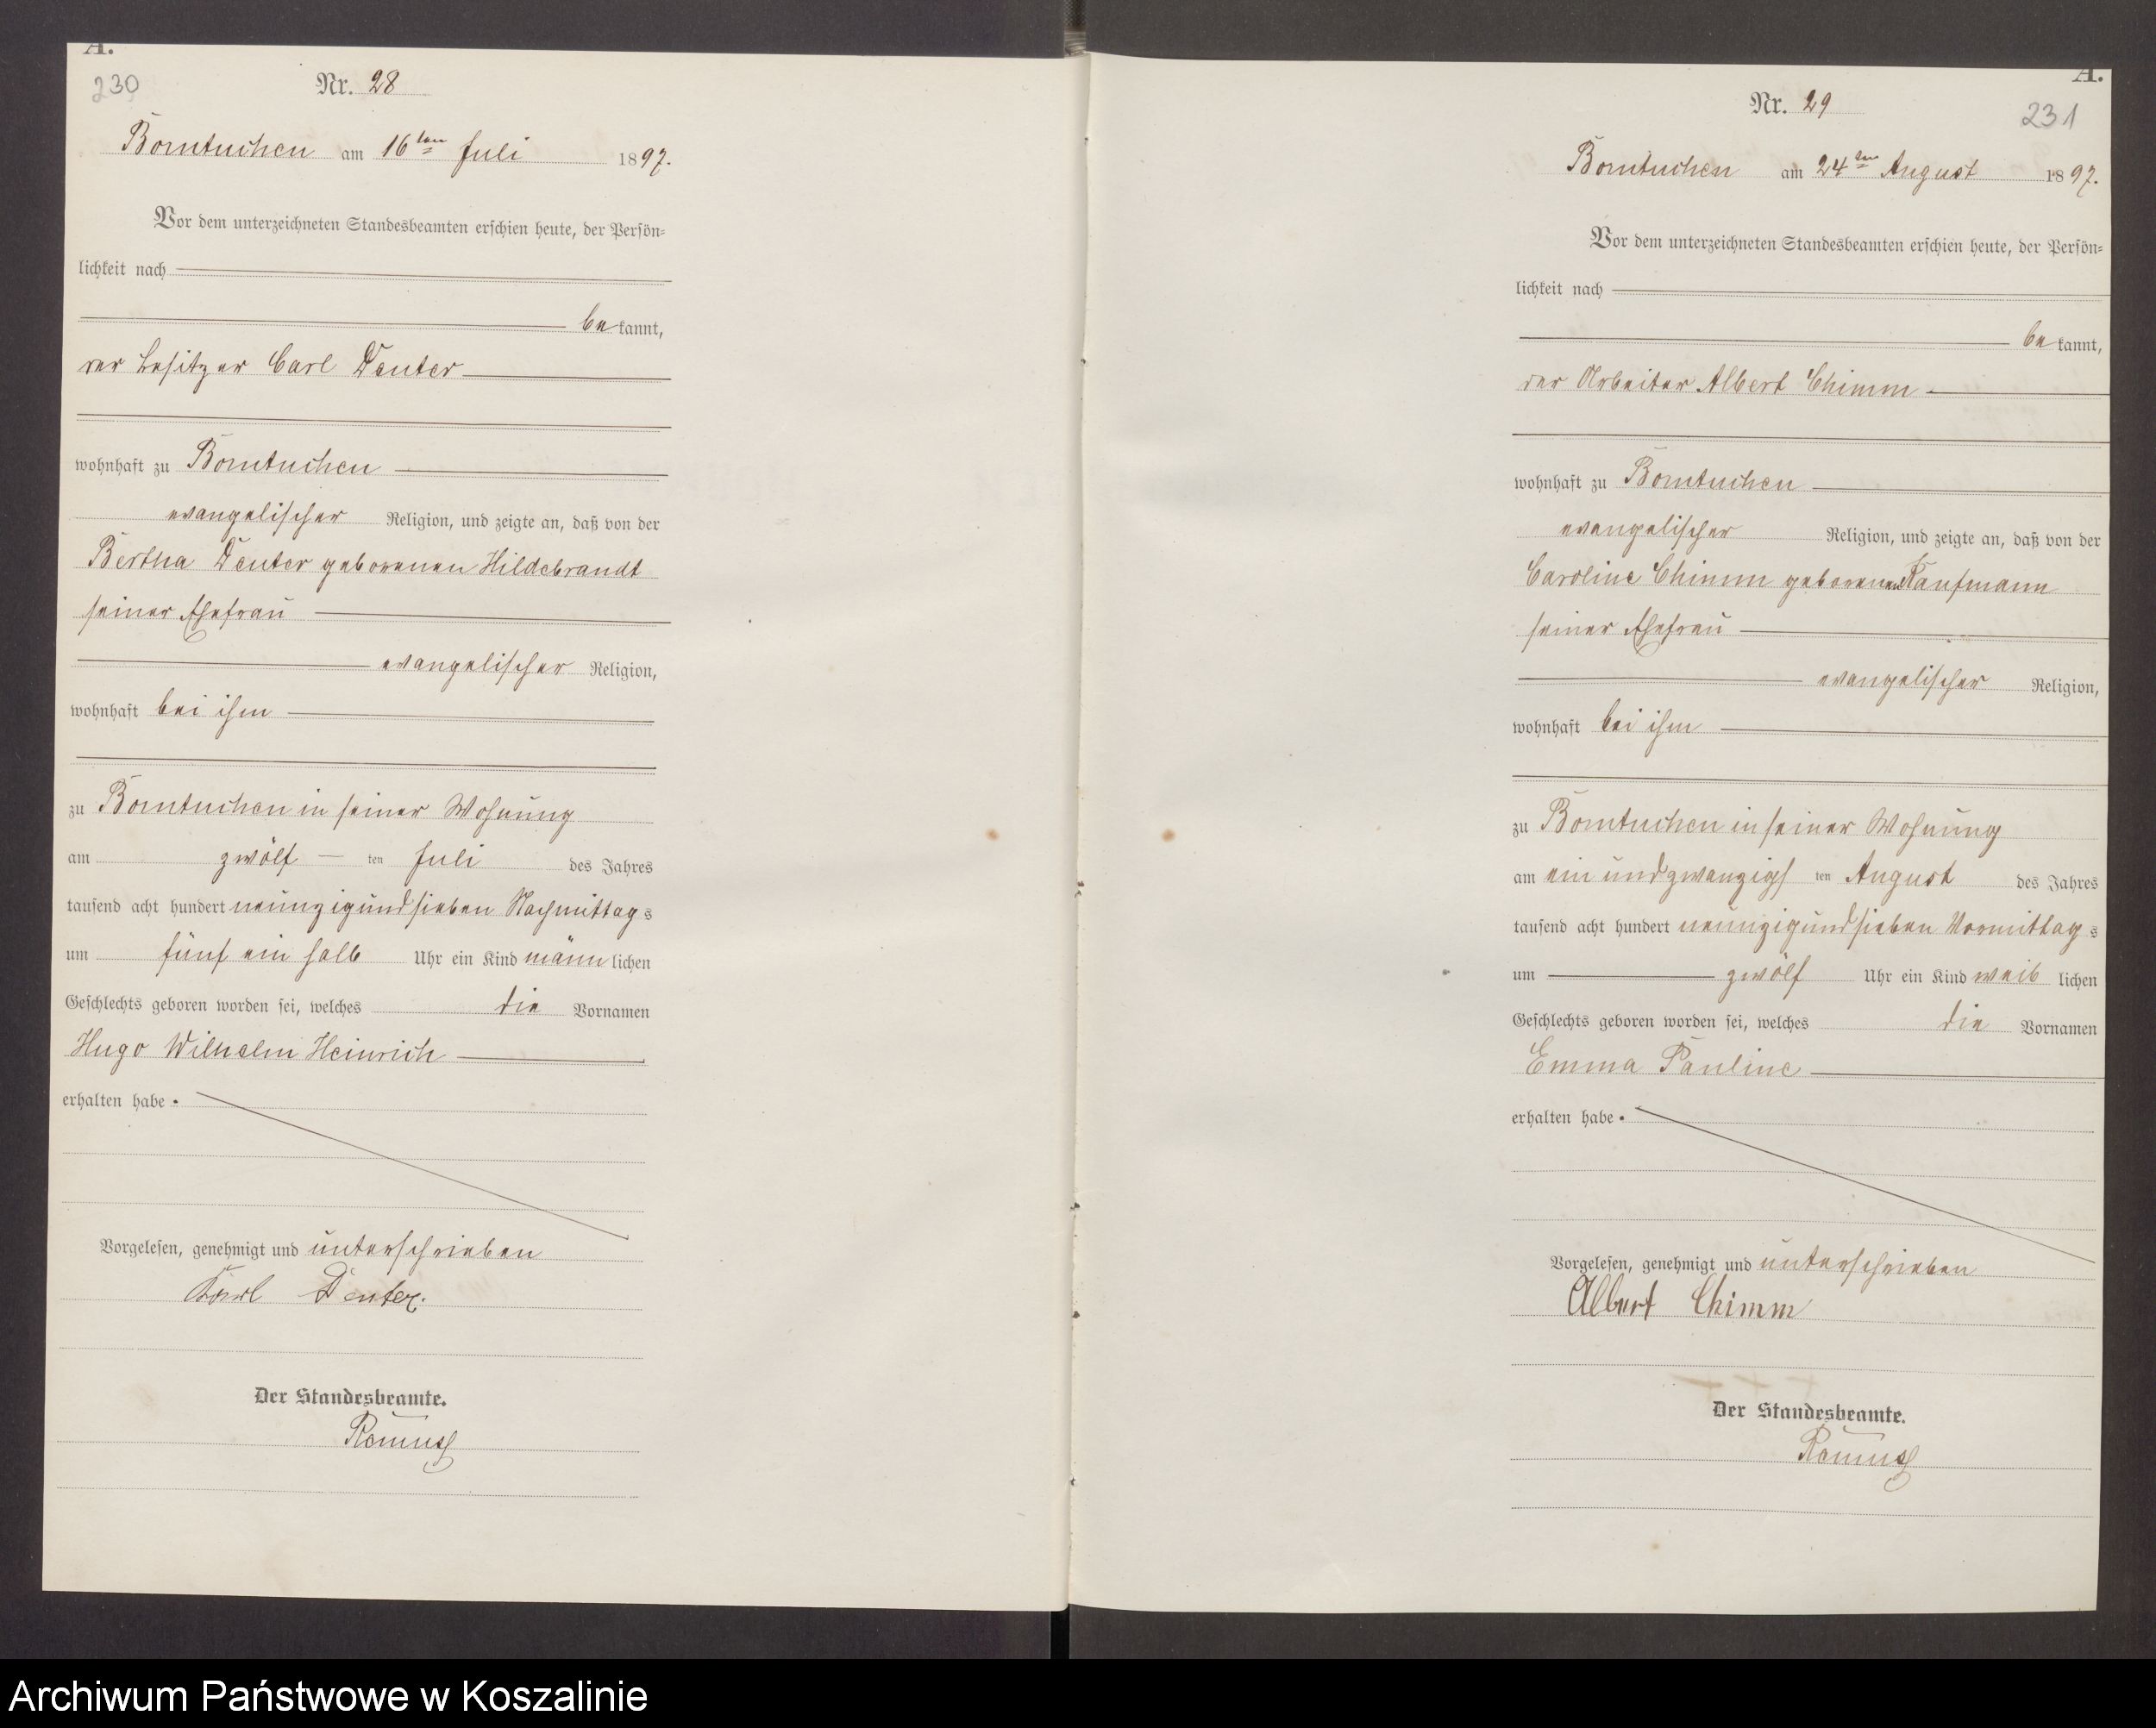 A.
230
Nr. 28
Borntuchen am 16ten Juli 1897.
Vor dem unterzeichneten Standesbeamten erschien heute, der Persön-
lichkeit nach
bekannt,
der Besitzer Carl Venter
wohnhaft zu Borntuchen
evangelischer Religion, und zeigte an, daß von der
Bertha Venter geborenen Hildebrandt
seiner Ehefrau
evangelischer Religion,
wohnhaft bei ihm
zu Borntuchen in seiner Wohnung
am zwölf ten Juli des Jahres
tausend acht hundert neunzig und sieben Nachmittags
um fünf ein halb Uhr ein Kind männlichen
Geschlechts geboren worden sei, welches die Vornamen
Hugo Wilhelm Heinrich
erhalten habe.
Vorgelesen, genehmigt und unterschrieben
Karl Venter.
Der Standesbeamte.
A.
Nr. 29
231
Borntuchen am 24ten August 1897.
Vor dem unterzeichneten Standesbeamten erschien heute, der Persön-
lichkeit nach
bekannt,
der Arbeiter Albert Chimm
wohnhaft zu Borntuchen
evangelischer Religion, und zeigte an, daß von der
Caroline Chimm geborenen Kaufmann
seiner Ehefrau
evangelischer Religion,
wohnhaft bei ihm
zu Borntuchen in seiner Wohnung
am ein und zwanzigsten August des Jahres
tausend acht hundert neunzig und sieben Vormittags
um zwölf Uhr ein Kind weiblichen
Geschlechts geboren worden sei, welches die Vornamen
Emma Pauline
erhalten habe.
Vorgelesen, genehmigt und unterschrieben
Albert Chimm
Der Standesbeamte.
Archiwum Państwowe w Koszalinie